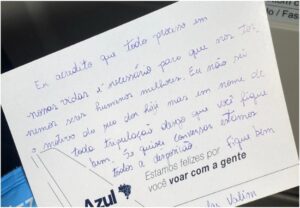 Eu acredito que todo processo em
nossas vidas é necessário para que nos tor
nemos seres humanos melhores. Eu não sei
o motivo do seu dia hoje mas em nome de
toda tripulação desejo que você fique
bem. Se quiser conversar estamos
todos a disposição. Fique bem
Azul
Estamos felizes por
você voar com a gente
Valim